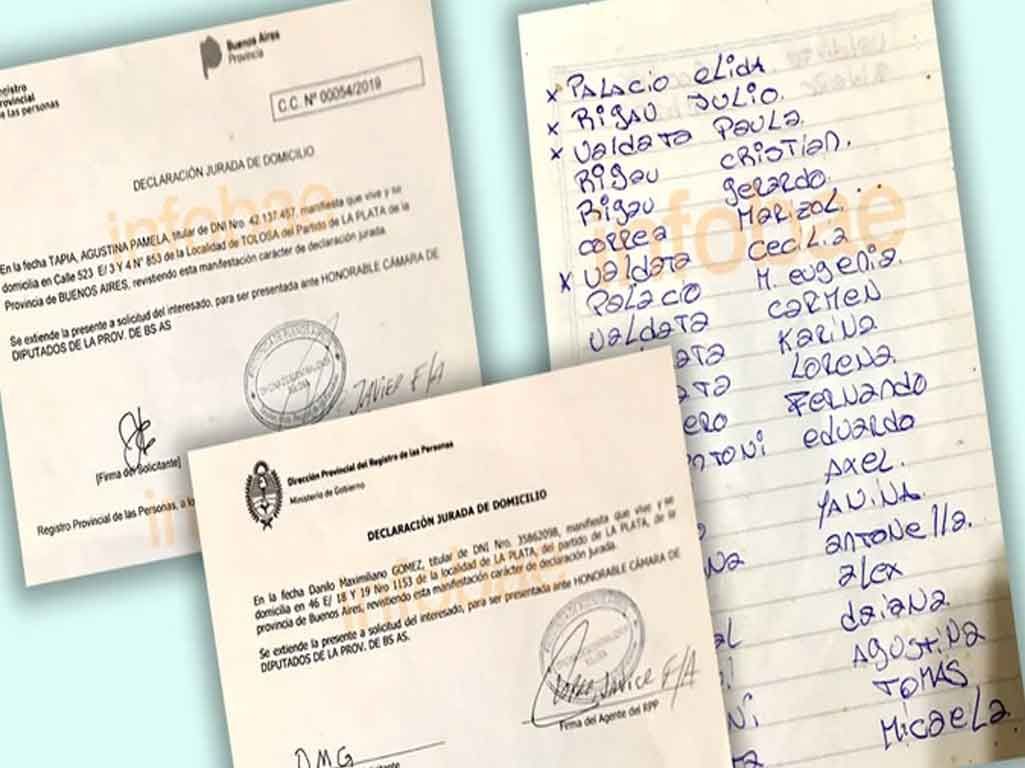 egistro
rovincial
e las personas
Buenos Aires
Provincia
C.C. Nº 00054/2019
DECLARACIÓN JURADA DE DOMICILIO
En la fecha TAPIA, AGUSTINA PAMELA, titular de DNI Nro. 42.137.457, manifiesta que vive y se
domicilia en Calle 523 E/ 3 Y 4 N° 853 de la Localidad de TOLOSA del Partido de LA PLATA de la
Provincia de BUENOS AIRES, revistiendo esta manifestación carácter de declaración jurada.
Se extiende la presente a solicitud del interesado, para ser presentada ante HONORABLE CÁMARA DE
DIPUTADOS DE LA PROV. DE BS AS
JAVIER F/A
[Firma del Solicitante]
Registro Provincial de las Personas, a lo
infobae
Dirección Provincial del Registro de las Personas
Ministerio de Gobierno
DECLARACIÓN JURADA DE DOMICILIO
En la fecha Danilo Maximiliano GOMEZ, titular de DNI Nro. 35862098, manifiesta que vive y se
domicilia en 46 E/ 18 Y 19 Nro 1153 de la localidad de LA PLATA, del partido de LA PLATA, de la
provincia de Buenos Aires, revistiendo esta manifestación carácter de declaración jurada.
Se extiende la presente a solicitud del interesado, para ser presentada ante HONORABLE CÁMARA DE
DIPUTADOS DE LA PROV. DE BS AS.
Javier F/A
Firma del Agente del RPP
DMG
x PALACIO ELIDA
x RIGAU JULIO.
x VALDATA PAULA.
RIGAU CRISTIAN.
RIGAU GERARDO.
CORREA MARIZOL...
x VALDATA CECILIA
PALACIO M. EUGENIA.
VALDATA CARMEN
ATA KARINA
ATA LORENA.
ERO FERNANDO
NTONI EDUARDO
AXEL.
YANINA.
ANTONELLA.
NA ALEX
DAIANA
AL AGUSTINA
I TOMAS
NI MICAELA
TA
infobae